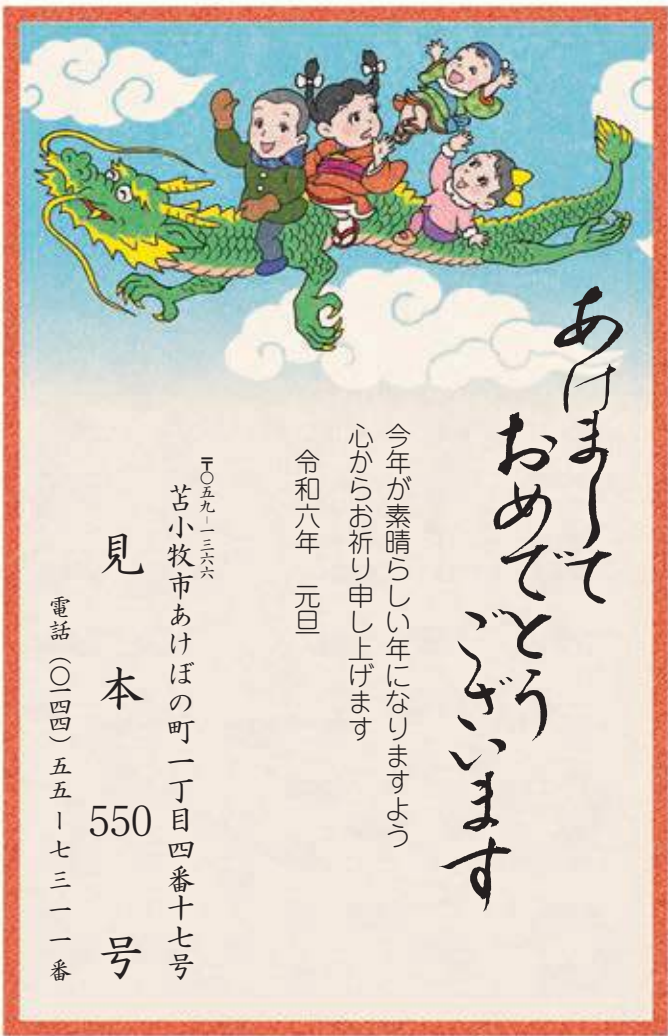 あけまして
おめでとう
ございます
今年が素晴らしい年になりますよう
心からお祈り申し上げます
令和六年　元旦
〒〇五九－一三六六
苫小牧市あけぼの町一丁目四番十七号
見本550号
電話（〇一四四）五五－七三一一番